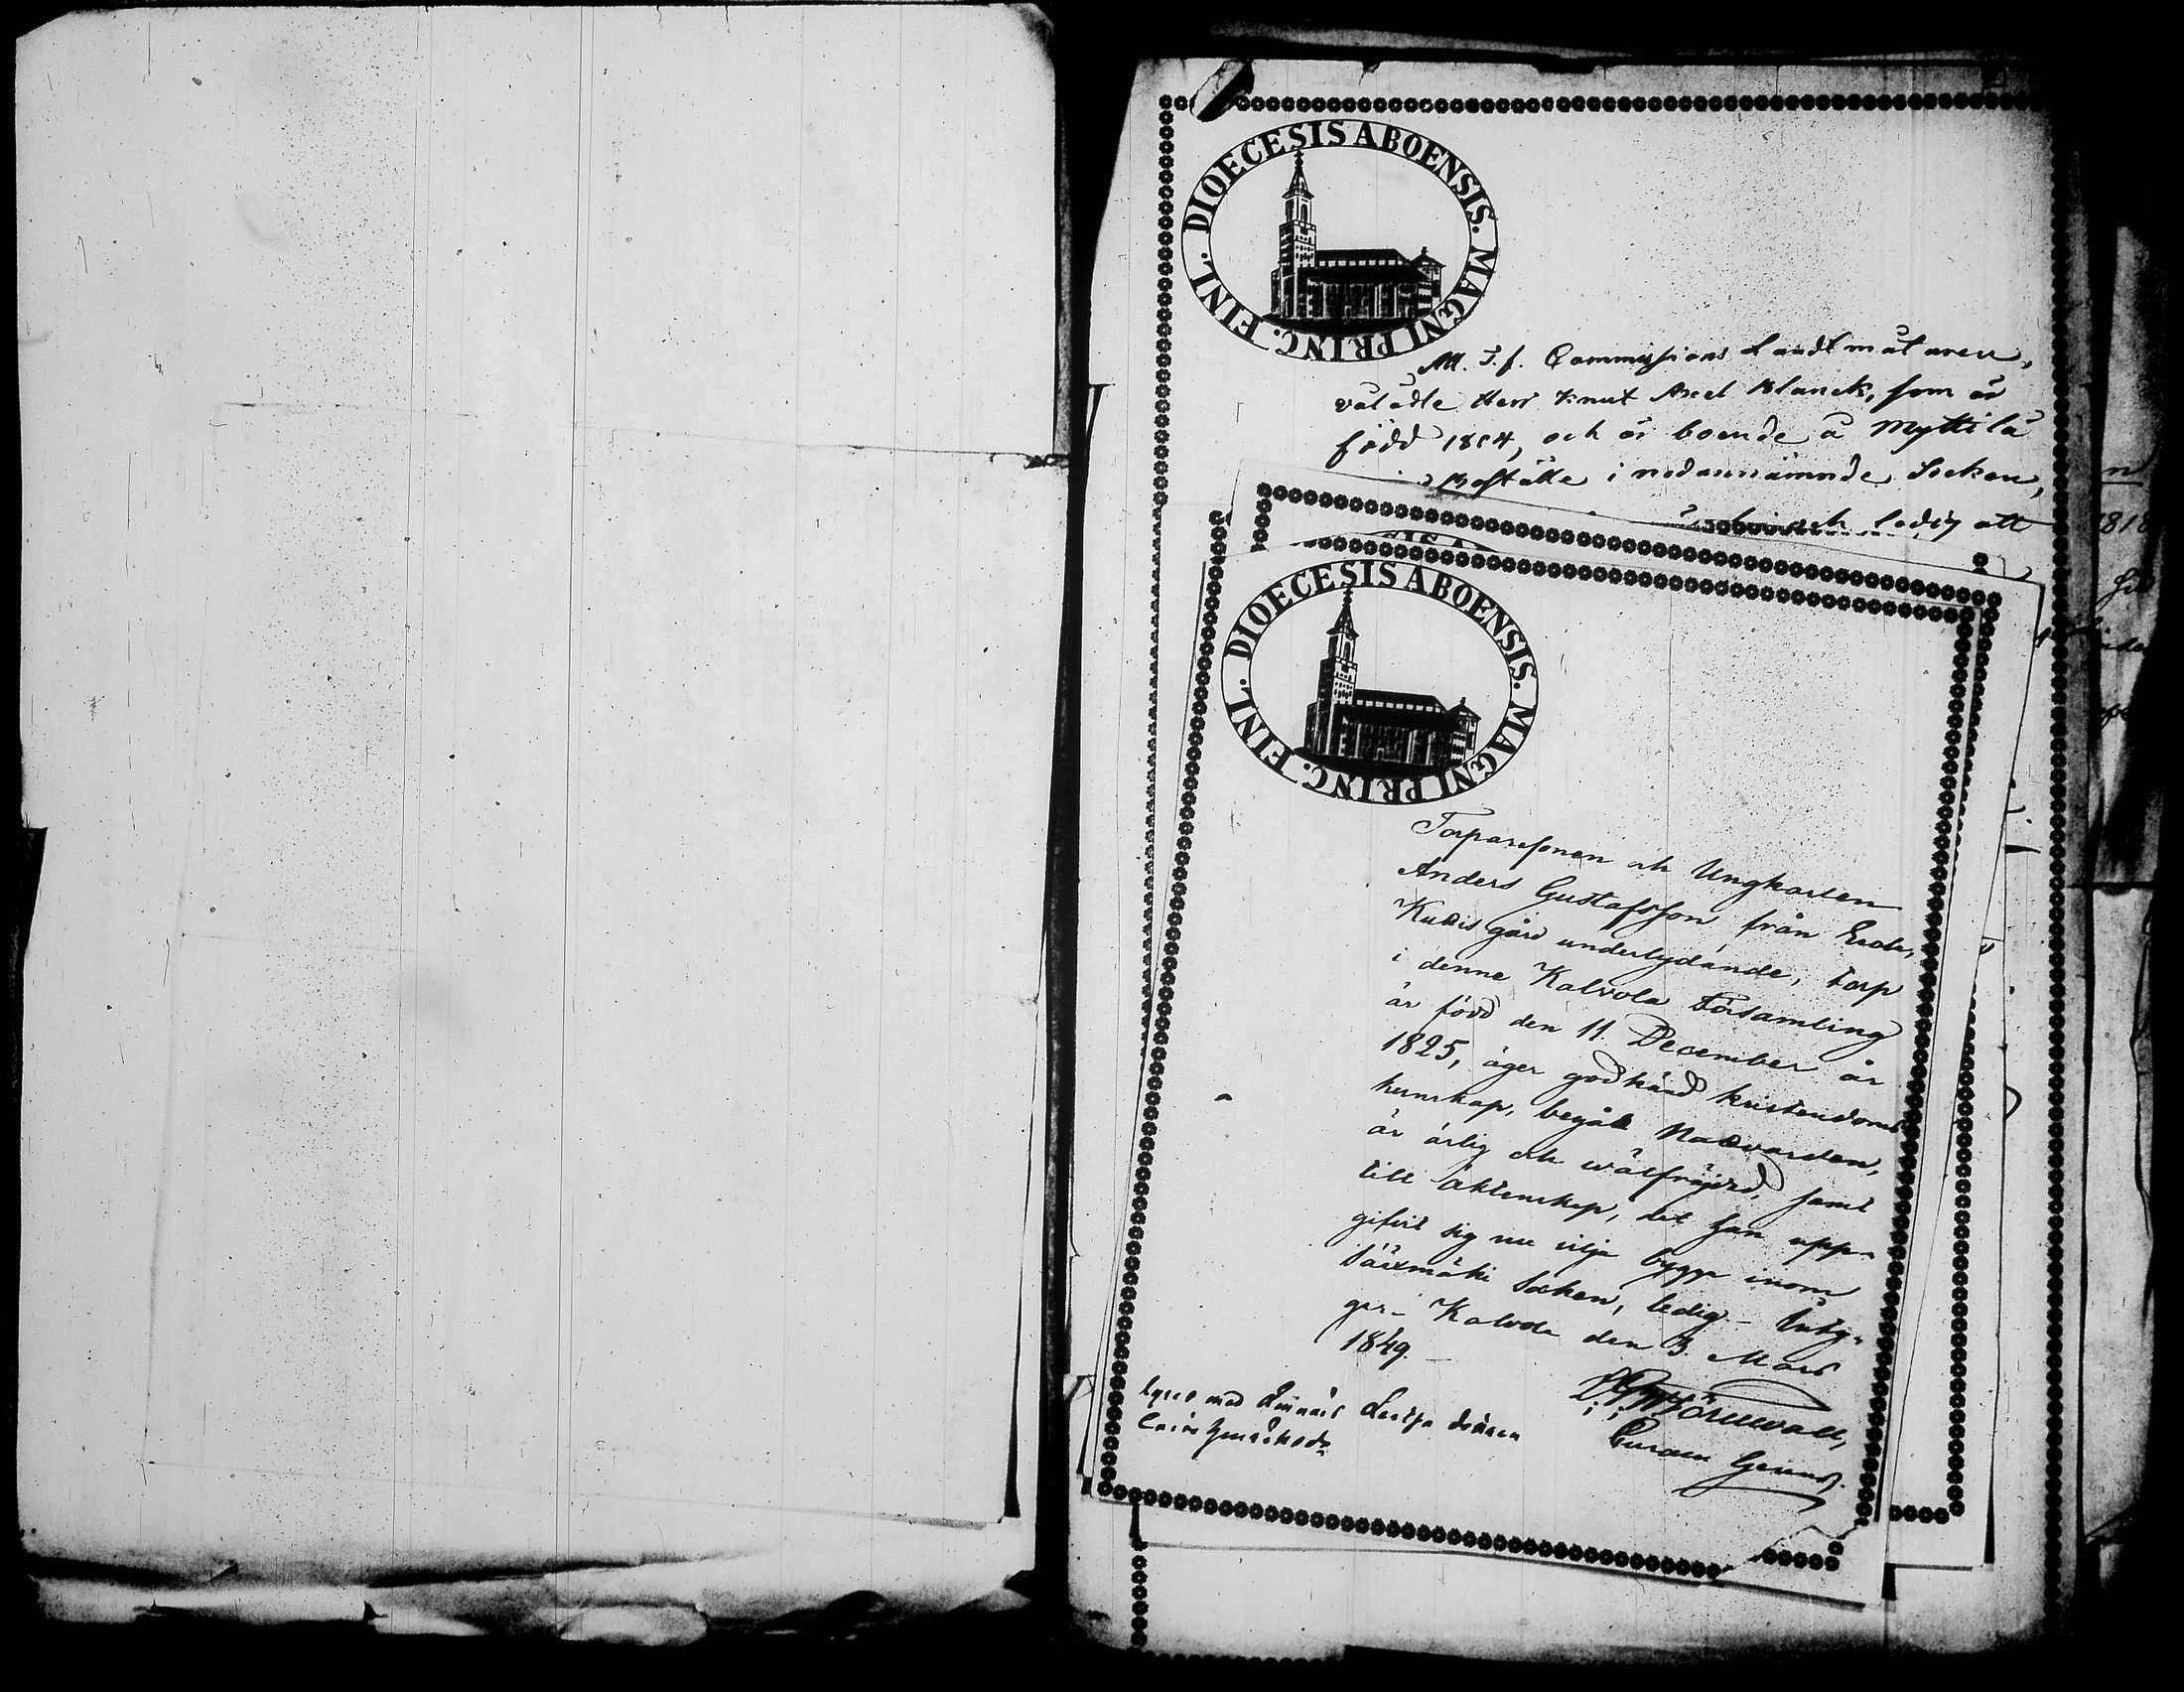 DIOECESIS ABOENSIS. MAGNI PRINC. FINL.
Att T.f. Commissions Landtmätaren,
väl ädle Herr Knut Axel Blanck, som är
född 1814, och är boende å Myttilä
Boställe i nedannämnde Socken,
ledig att
DIOECESIS ABOENSIS. MAGNI PRINC. FINL.
Torparesonen och Ungkarlen
Anders Gustafsson från
gård underlydande, torp
i denne Kalvola Församling
är född den 11. December år
1825, äger godkänd kristendoms
kunskap, begått Nattvarden,
är ärlig och wälfräjdad, samt
till äktenskap, det han upp-
gifvit sig nu vilja bygga inom
Sääxmäki Socken, ledig - bety-
gar - Kalvola den 3. Mars
1849. -
Lyses med
n
1818